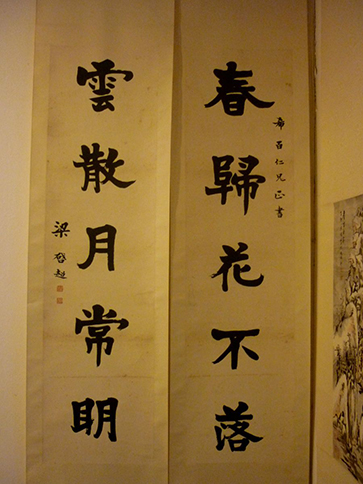 春歸花不落
希仁兄正書
雲散月常明
梁啓超